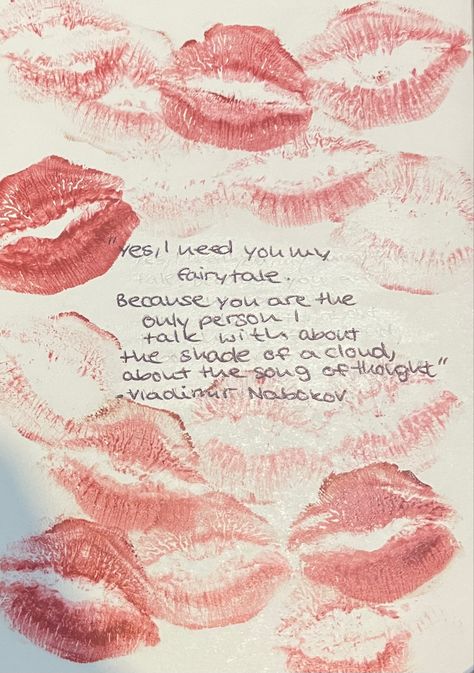 "Yes, I need you my
fairytale.
Because you are the
only person I
talk with about
the shade of a cloud,
about the song of thought"
-Vladimir Nabokov